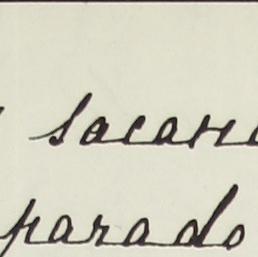 sacar
parado